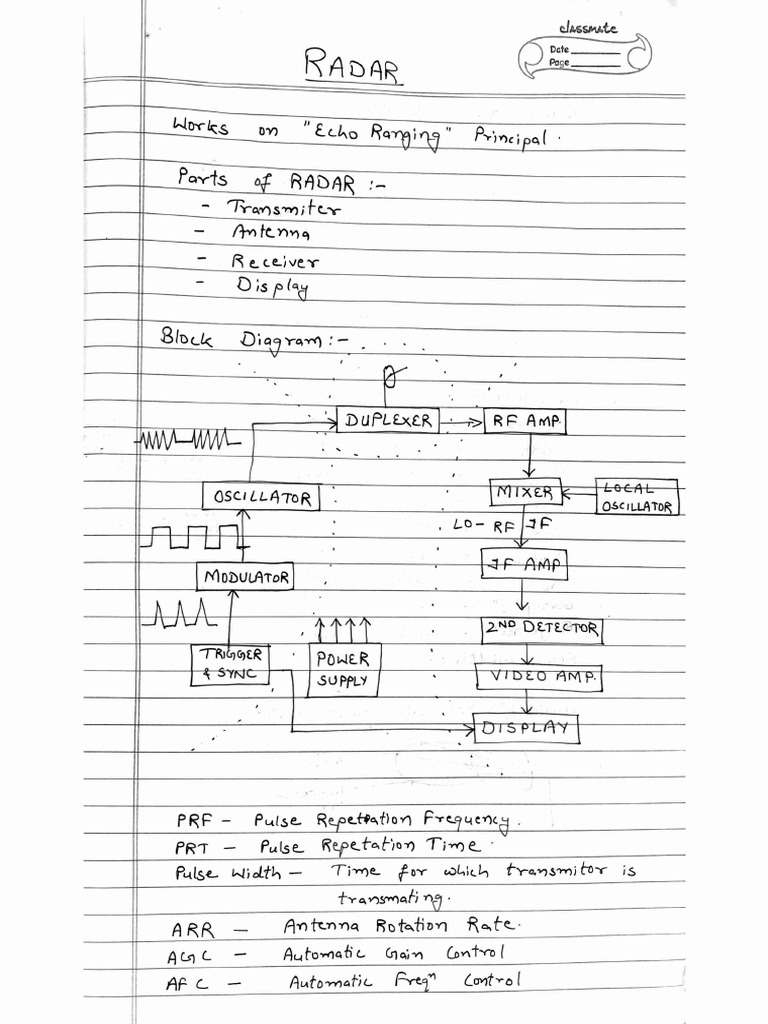 classmate
Date
Page
RADAR
Works on "Echo Ranging" Principal.
Parts of RADAR :-
- Transmiter
- Antenna
- Receiver
- Display
Block Diagram :-
DUPLEXER
RF AMP.
OSCILLATOR
MIXER
LOCAL
OSCILLATOR
LO - RF IF
MODULATOR
IF AMP
2ND DETECTOR
TRIGGER
& SYNC
POWER
SUPPLY
VIDEO AMP.
DISPLAY
PRF - Pulse Repetation Frequency.
PRT - Pulse Repetation Time.
Pulse Width - Time for which transmitor is
transmating.
ARR - Antenna Rotation Rate.
AGC - Automatic Gain Control
AFC - Automatic Freqn Control